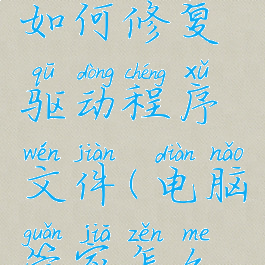 如何修复
qū dòng chéng xǔ
驱动程序
wén jiàn diàn nǎo
文件(电脑
guǎn jiā zěn me
管家怎么